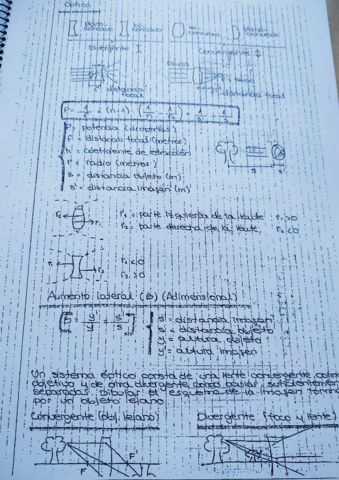 Óptica
Divergente Convergente
distancia focal distancia focal
P = 1/f' = (n-1) · (1/r₁ - 1/r₂) = 1/s' - 1/s
P = potencia (dioptrías)
f' = distancia focal (metros)
n = coeficiente de refracción
r = radio (metros)
s = distancia objeto (m)
s' = distancia imagen (m)
r₁ = parte izquierda de la lente r₁ > 0
r₂ = parte derecha de la lente r₂ < 0
r₁ < 0
r₂ > 0
Aumento lateral (β) (Adimensional)
β = y'/y = s'/s
s' = distancia imagen
s = distancia objeto
y = altura objeto
y' = altura imagen
Un sistema óptico consta de una lente convergente como
objetivo y de otra divergente como ocular, suficientemente
separadas. Dibujar el esquema de la imagen
por un objeto lejano.
Convergente (obj. lejano) Divergente (foco y lente)
F F'